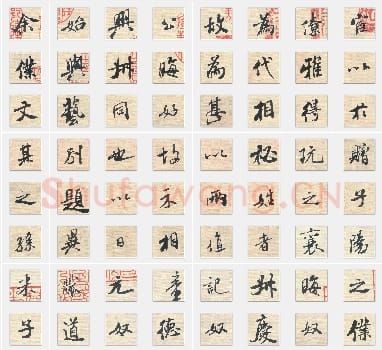 余始興公故為僚宦
僕與叔晦為代雅以
文藝同好甚相得於
其別也故以秘玩贈
之題以示兩姓之子
Shufawang.CN
孫異日相值者襄陽
米黻元章記叔晦之
子道奴德奴慶奴僕